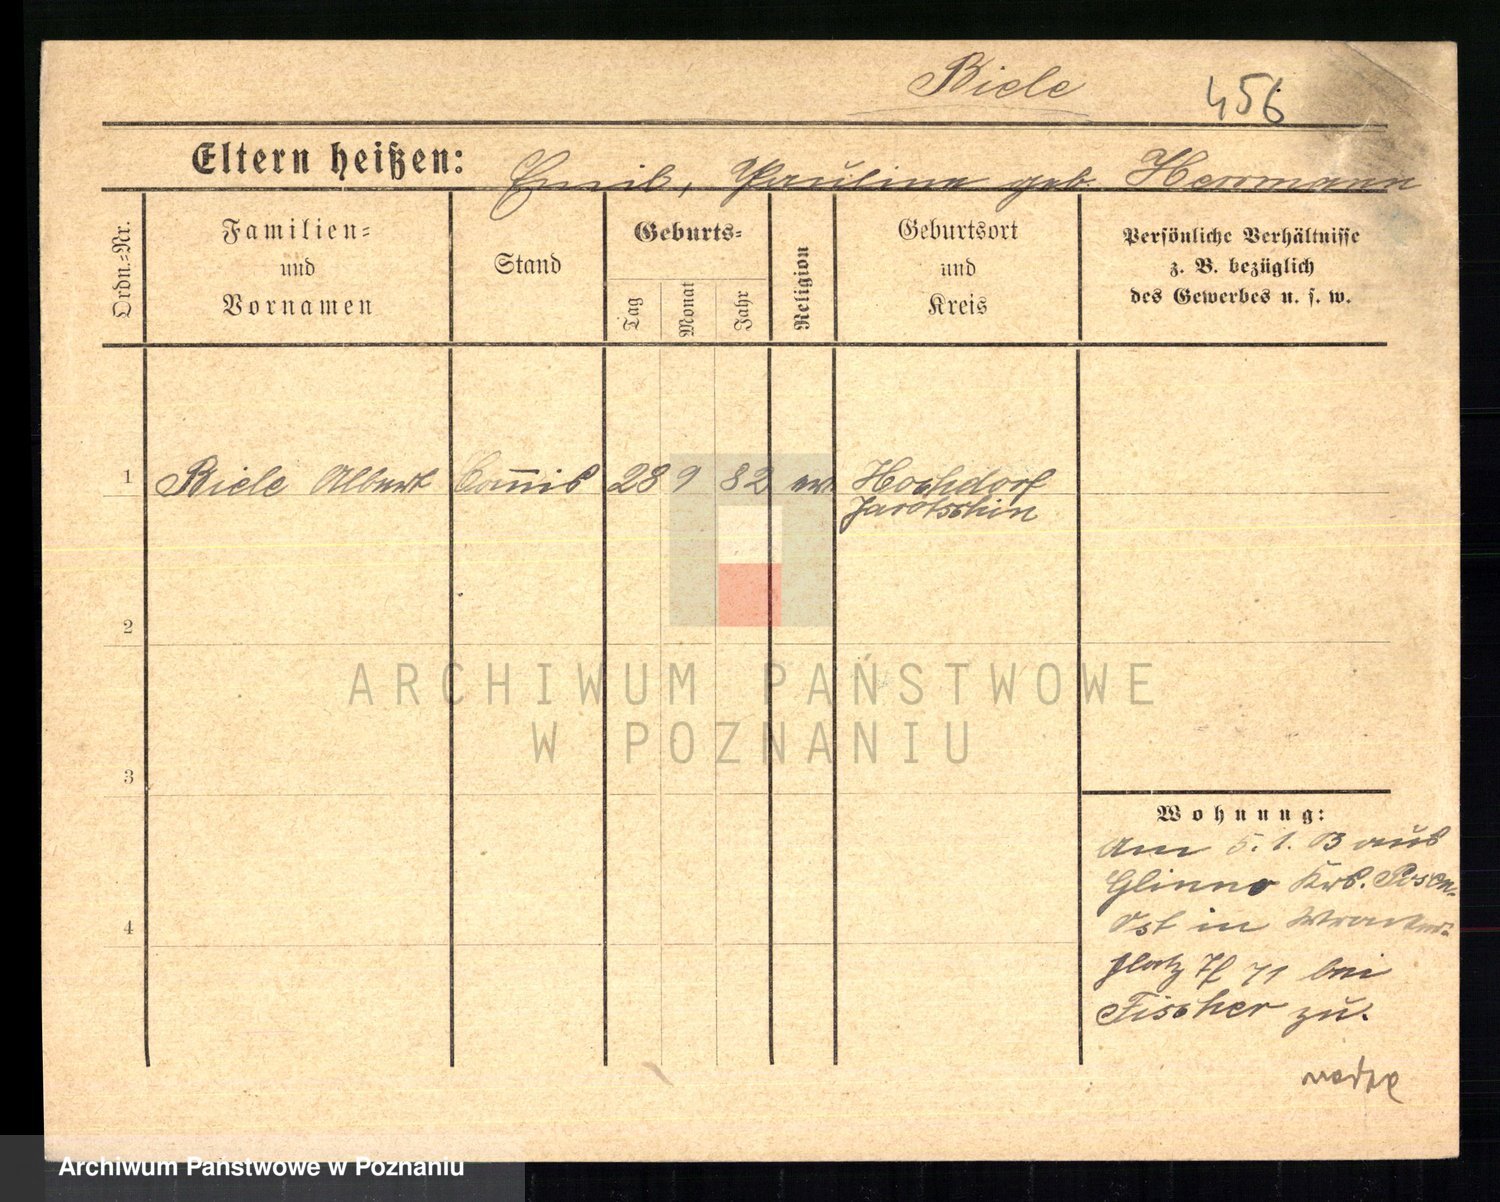 Biele 456
Eltern heißen: Emil, Pauline geb. Herrmann
Ordn.-Nr.
Familien-
und
Vornamen
Stand
Geburts-
Tag
Monat
Jahr
Religion
Geburtsort
und
Kreis
Persönliche Verhältnisse
z. B. bezüglich
des Gewerbes u. s. w.
1 Biele Albert Com̄is 28 9 82 ev. Hochdorf
Jarotschin
2
3
4
Wohnung:
Am 5. 1. 13 aus
Glinno Krs. Posen-
Ost in
platz 71 bei
Fischer zu.
ARCHIWUM PAŃSTWOWE
W POZNANIU
Archiwum Państwowe w Poznaniu